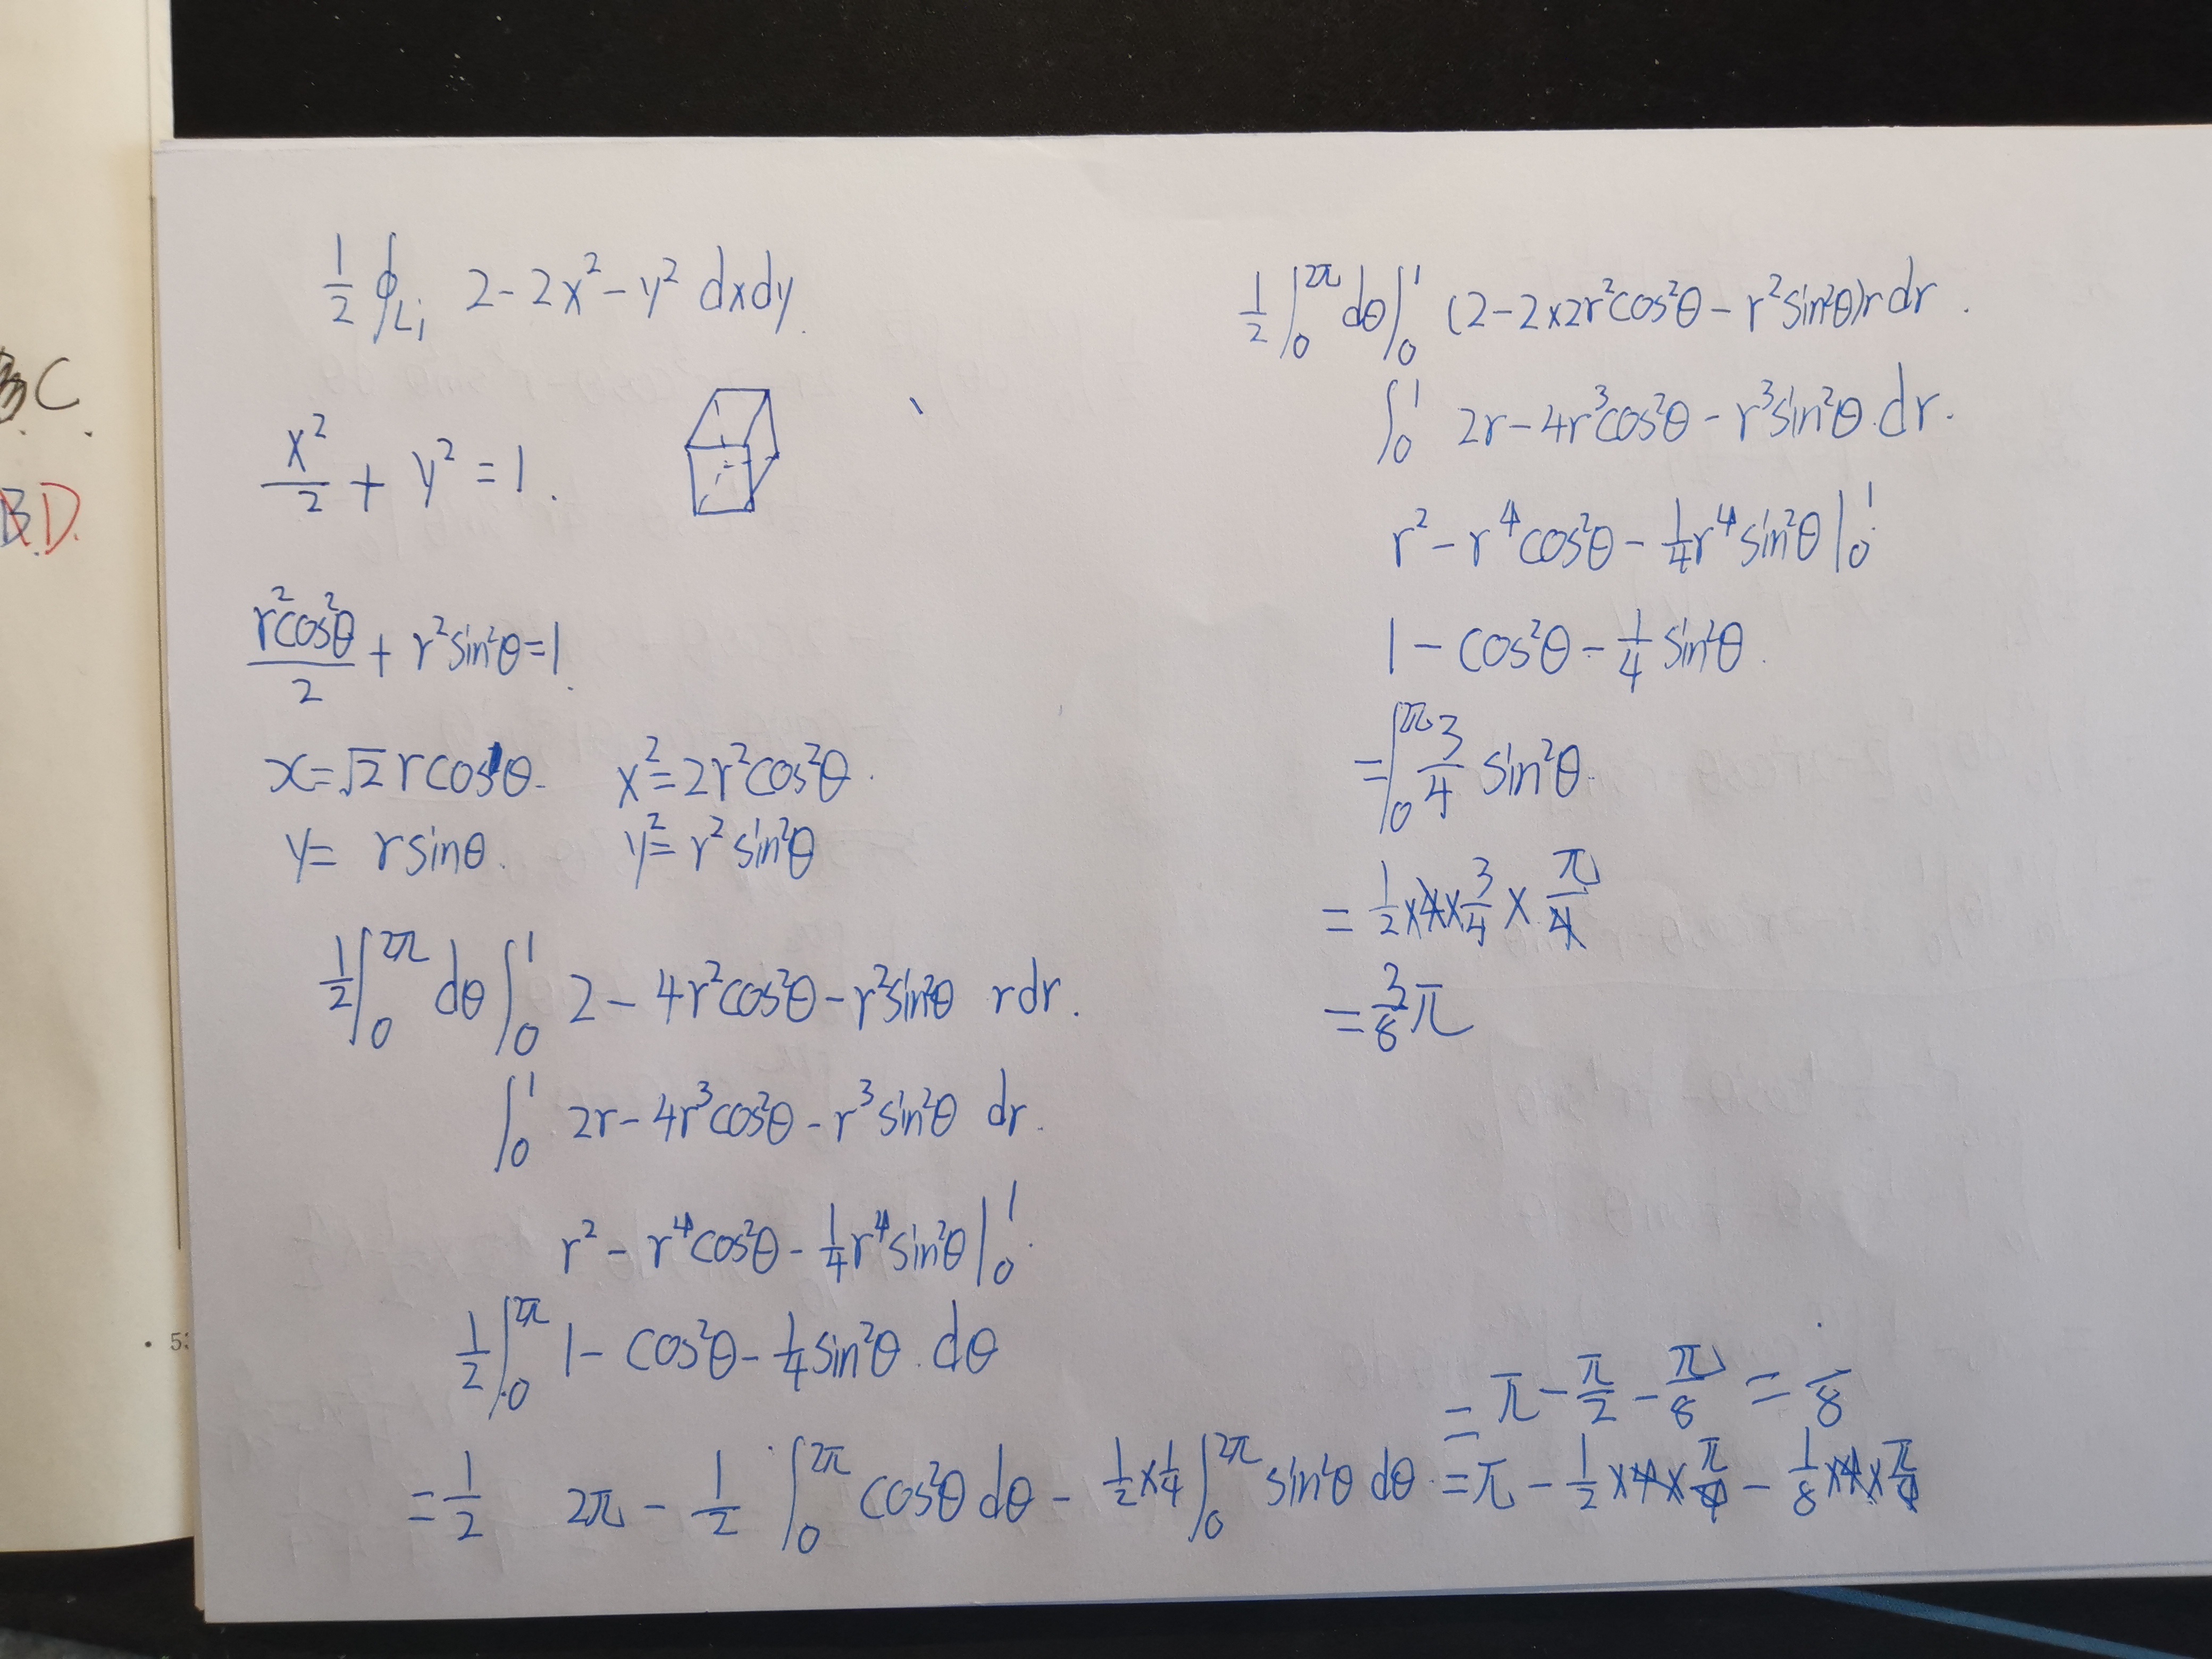 BC.
BD.
53
1/2 ∮_{Li} 2-2x²-y² dxdy.
x²/2 + y² = 1.
r²cos²θ/2 + r²sin²θ=1.
x=√2 rcosθ. x²=2r²cos²θ.
y= rsinθ. y²=r²sin²θ
1/2 ∫_0^{2π} dθ ∫_0^1 2-4r²cos²θ-r²sin²θ rdr.
∫_0^1 2r-4r³cos²θ-r³sin²θ dr.
r²-r⁴cos²θ-1/4 r⁴sin²θ |_0^1.
1/2 ∫_0^{2π} 1-cos²θ-1/4 sin²θ.dθ
=1/2 2π - 1/2 ∫_0^{2π} cos²θdθ - 1/2×1/4 ∫_0^{2π} sin²θdθ. =π - 1/2×4×π/4 - 1/8×4×π/4
=π-π/2-π/8 = /8
1/2 ∫_0^{2π} dθ ∫_0^1 (2-2×2r²cos²θ-r²sin²θ)rdr.
∫_0^1 2r-4r³cos²θ-r³sin²θ.dr.
r²-r⁴cos²θ-1/4 r⁴sin²θ |_0^1
1-cos²θ-1/4 sin²θ.
=∫_0^{2π} 3/4 sin²θ.
= 1/2×4×3/4×π/4
=3/8 π